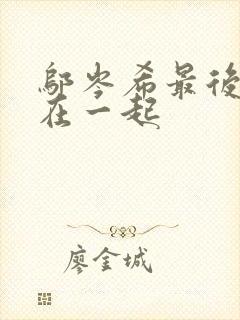 鄔岑希最後
在一起
廖金城